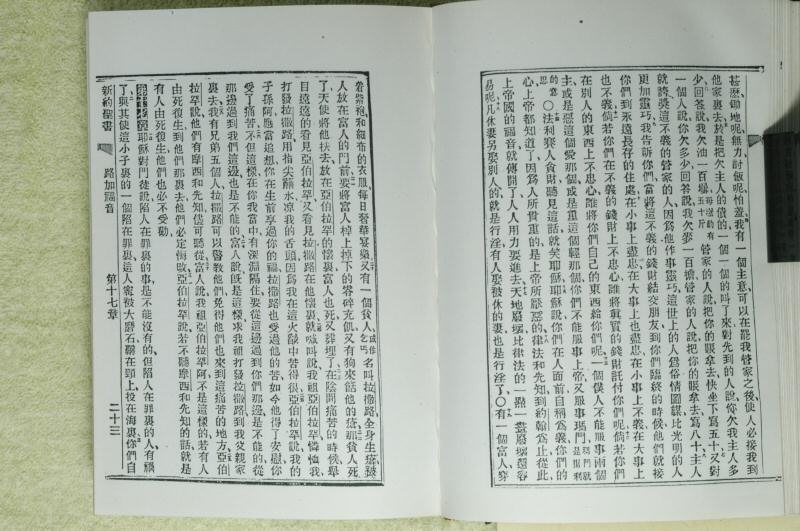 甚麽鋤地呢無力討飯呢怕羞我有一個主意可以在罷我管家之後使人必接我到
他家裏去於是把欠主人的債的一個一個的叫了來對先到的人說你欠我主人多
少回答說我欠油一百
管家的人說把你的賬拿去快坐下寫五十又對
一個人說你欠多少回答說我欠麥一百
管家的人說把你的賬拿去寫八十主人
就誇獎這不義的管家的人因爲他作事靈巧這世上的人爲俗情圖謀比光明的人
更加靈巧我告訴你們當將這不義的錢財結交朋友到你們臨終的時候他們就接
你們到永遠長存的住處在小事上盡忠在大事上也盡忠在小事上不義在大事上
也不義倘若你們在不義的錢財上不忠心誰將眞實的錢財託付你們呢倘若你們
在別人的東西上不忠心誰將你們自己的東西給你們呢一個僕人不能服事兩個
主或是惡這個愛那個或是重這個輕那個你們不能服事上帝又服事瑪門
的意思〇法利賽人貪財聽見這話就笑耶穌耶穌說你們在人面前自稱爲義你們的
心上帝都知道了因爲人所貴重的是上帝所厭惡的律法和先知到約翰爲止從此
上帝國的福音就傳開了人人用力要進去天地廢壞比律法的一點一畫廢壞還容
易呢凡休妻另娶別人的就是行淫有人娶被休的妻也是行淫了〇有一個富人穿
着紫袍和細布的衣服每日奢華宴樂又有一個貧人
名叫拉撒路全身生瘡
人放在富人的門前要將富人棹上掉下的零碎充飢又有狗來餂他的瘡那貧人死
了天使將他扶去放在亞伯拉罕的懷裏富人也死又葬埋了在陰間痛苦的時候舉
目遠遠的看見亞伯拉罕又看見拉撒路在他懷裏就喊叫說我祖亞伯拉罕憐恤我
打發拉撒路用指尖蘸水凉我的舌頭因爲我在這火燄中苦得很亞伯拉罕說我的
子孫阿應當追想你在生前享過你的福拉撒路也受過他的苦如今他得了安慰你
受了痛苦不但這樣在你我當中有深淵隔住要從這邊過到你們那邊是不能的從
那邊過到我們這邊也是不能的富人說旣是這樣求我祖打發拉撒路到我父親家
裏去我有兄弟五個人拉撒路可以警教他們免得他們也來到這痛苦的地方亞伯
拉罕說他們有摩西和先知儘可聽從富人說我祖亞伯拉罕阿不是這樣的若有人
由死復生到他們那裏去他們必定悔改亞伯拉罕說若不聽摩西和先知的話就是
有人由死復生他們也必不受勸
耶穌對門徒說陷人在罪裏的事是不能沒有的但陷人在罪裏的人有禍
了與其使這小子裏的一個陷在罪裏這人寧被大磨石
在頸上投在海裏你們自
新約聖書 路加福音 第十七章 二十三